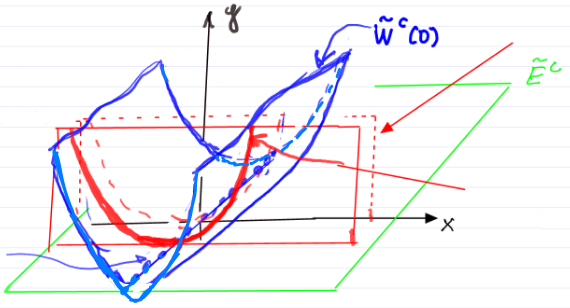 y
W̃ᶜ(0)
Ẽᶜ
x